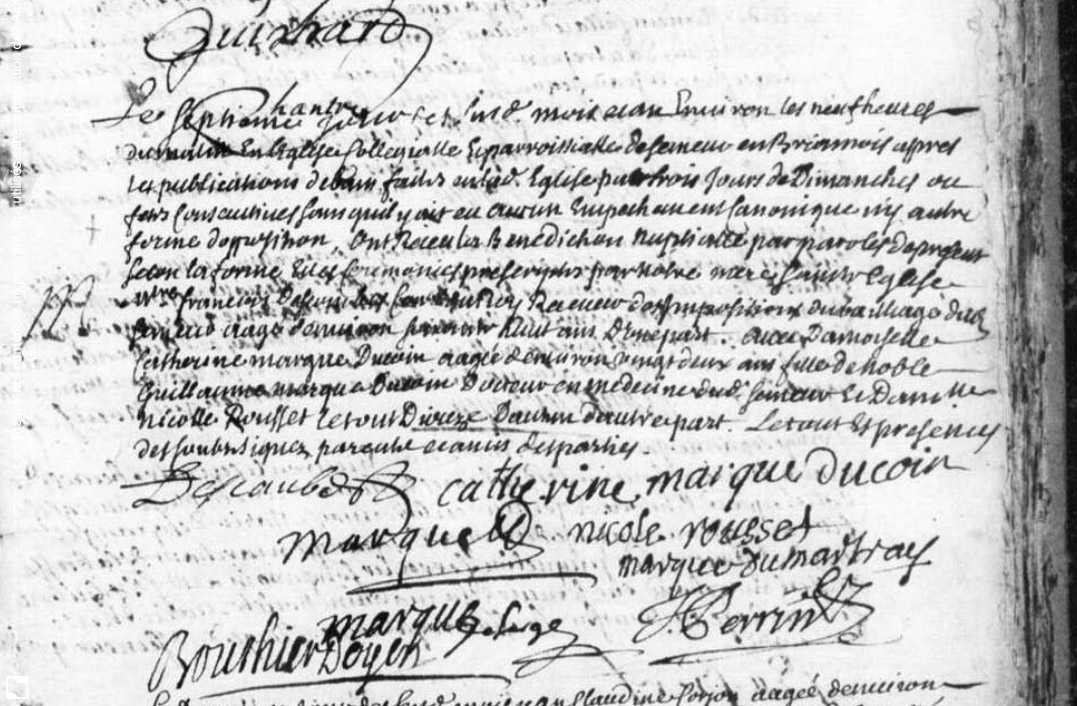 Guichard
Le septieme jour des susd. mois et an Environ les neuf heures
du matin En Leglise Collegialle Et parroissialle de semeur en Brionnois appres
les publications de bans faites en lad. Eglise par trois Jours de Dimanches ou
festes Consecutives sans quil y ait eu aucun Empechement Canonique ny autre
forme dopposition, Ont Receu la Benediction Nuptialle par paroles de present
selon la forme Et les ceremonies prescriptes par notre mere Sainte Eglise
Mre francois Descombes Receveur des Impositions du bailliage dud.
semeur aagé denviron huit ans D'Une part. avec Damoiselle
Catherine marque Ducoin aagée denviron vingt deux ans fille de Noble
Guillaume marque Ducoin Docteur en medecine dud. semeur Et Damlle
Nicolle Rousset le tout Dioceze Dautun d'autre part. Le tout Es presences
des soubsignez parents et amis des parties.
catherine marque ducoin
marque nicole rousset
marque dumartray
marque Perrin
Bouthier Doyen
Claudine aagée denviron